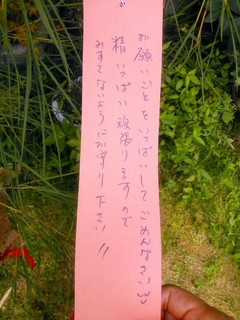 お願いごとをいっぱいしてごめんなさいww
精いっぱい頑張りますので
みすてないようにお守り下さい!!